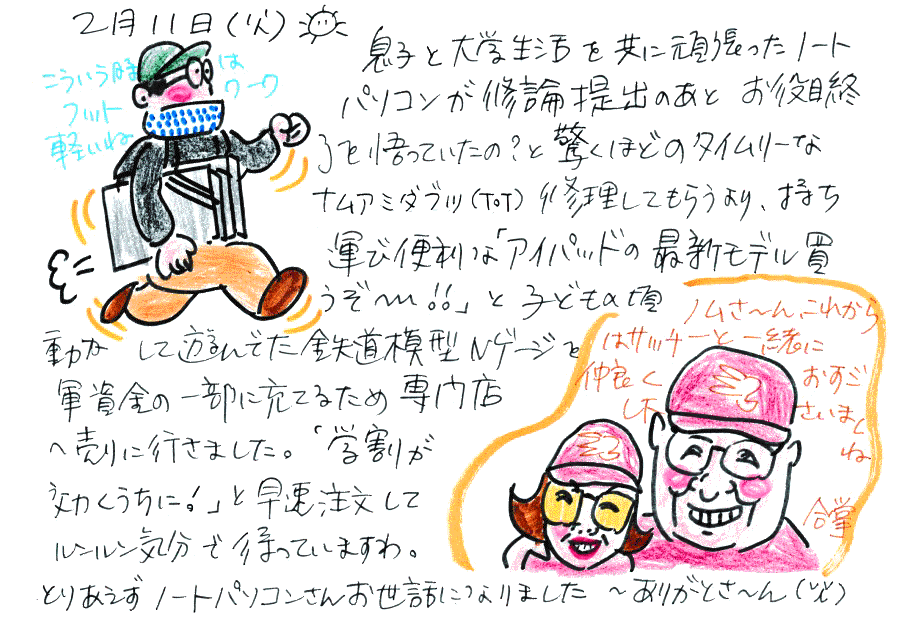 2月11日(火)
こういう時は
フットワーク
軽いね
息子と大学生活を共に頑張ったノート
パソコンが修論提出のあと お役目終
了を悟っていたの?と驚くほどのタイムリーな
ナムアミダブツ(ToT) 修理してもらうより、
運び便利な「アイパッドの最新モデル買
うぞ〜!!」と子どもの頃
動かして遊んでた鉄道模型Nゲージを
軍資金の一部に充てるため専門店
へ売りに行きました。「学割が
効くうちに!」と早速注文して
ルンルン気分で待っていますわ。
とりあえずノートパソコンさんお世話になりました〜ありがとさ〜ん(笑)
ノムさ〜んこれから
はサッチーと一緒に
仲良く おすご
し下さいませ
ね
合掌